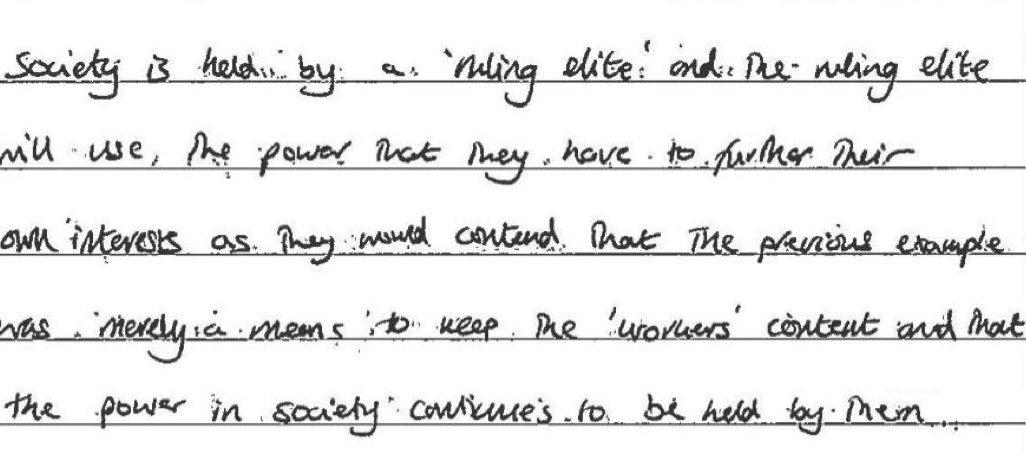 society is held by a 'ruling elite' and the ruling elite
will use, the power that they have to further their
own interests as they would contend that the previous example
was merely a means to keep the 'workers' content and that
the power in society continues to be held by them.